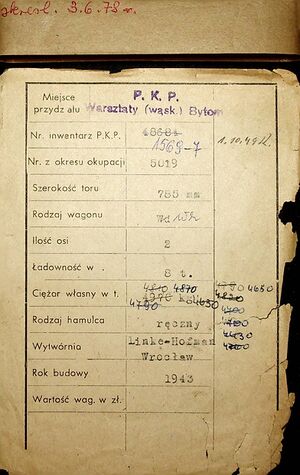 skreśl. 3.6.78 r.
Miejsce przydziału P. K. P. Warsztaty (wąsk.) Bytom
Nr. inwentarz P.K.P. 48684 1569-7 1.10.49
Nr. z okresu okupacji 5019
Szerokość toru 785 mm
Rodzaj wagonu
Ilość osi 2
Ładowność w . 8 t.
Ciężar własny w t. 4810 4870 4970 kg 4790 4650 4650
Rodzaj hamulca ręczny
Wytwórnia Linke-Hofman Wrocław
Rok budowy 1943
Wartość wag. w zł.